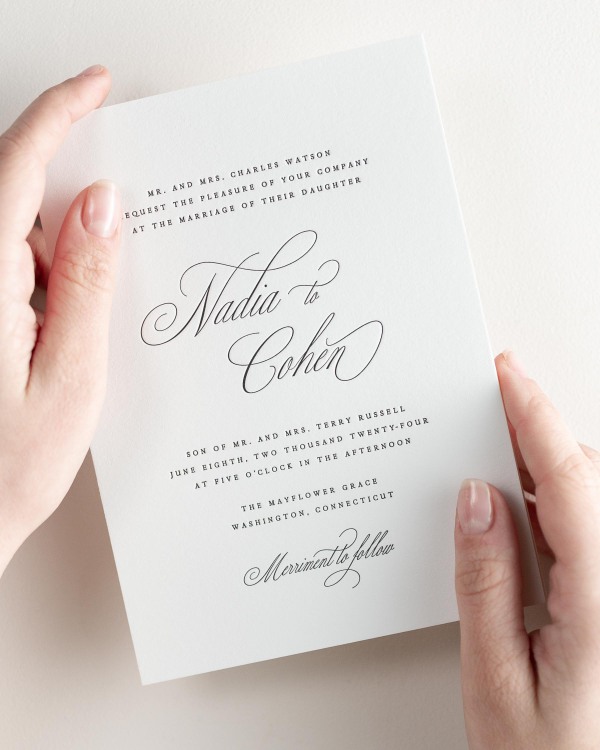 MR. AND MRS. CHARLES WATSON
EQUEST THE PLEASURE OF YOUR COMPANY
AT THE MARRIAGE OF THEIR DAUGHTER
Nadia to
Cohen
SON OF MR. AND MRS. TERRY RUSSELL
JUNE EIGHTH, TWO THOUSAND TWENTY-FOUR
AT FIVE O'CLOCK IN THE AFTERNOON
THE MAYFLOWER GRACE
WASHINGTON, CONNECTICUT
Merriment to follow